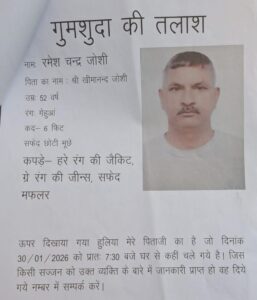 गुमशुदा की तलाश
नाम: रमेश चन्द्र जोशी
पिता का नाम : श्री खीमानन्द जोशी
उम्र: 52 वर्ष
रंग: गेहुआं
कद- 6 फिट
सफेद छोटी मूछे
कपड़े- हरे रंग की जैकिट,
ग्रे रंग की जीन्स, सफेद
मफलर
ऊपर दिखाया गया हुलिया मेरे पिताजी का है जो दिनांक
30/01/2026 को प्रातः 7:30 बजे घर से कहीं चले गये है। जिस
किसी सज्जन को उक्त व्यक्ति के बारे में जानकारी प्राप्त हो वह दिये
गये नम्बर में सम्पर्क करें।